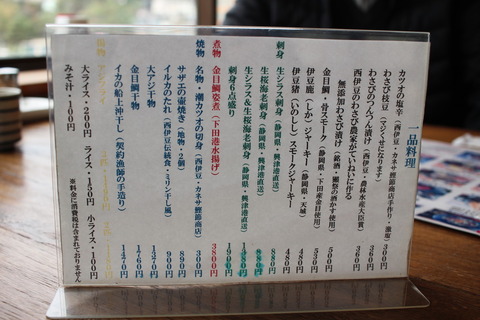 一品料理
カツオの塩辛（西伊豆・カネサ鰹節商店手作り・激塩）300円
わさび枝豆（マジくせになります）360円
わさびのつんつん漬け（西伊豆・農林水産大臣賞）
西伊豆のわさび農家がていねいに作る
無添加わさび漬け（銘酒・獺祭の酒かす使用）500円
金目鯛・骨スモーク（静岡県・下田産金目使用）530円
伊豆鹿（しか）ジャーキー（静岡県・天城）480円
伊豆猪（いのしし）スモークジャーキー 480円
刺身
生シラス刺身（静岡県・興津港直送）880円
生桜海老刺身（静岡県・興津港直送）880円
生シラス＆生桜海老刺身（静岡県・興津港直送）1380円
刺身6点盛り 1900円
煮物
金目鯛姿煮（下田港水揚げ）3800円
焼物
名物・潮カツオの切身（西伊豆・カネサ鰹節商店）300円
サザエの壷焼き（地物・2個）890円
イルカのたれ（西伊豆伝統食・ミリン干し風）890円
大アジ干物 1270円
金目鯛干物 1760円
イカの船上沖干し（契約漁師の手造り）1470円
大ライス・200円 ライス・150円 小ライス・100円
みそ汁・100円
※料金に消費税は含まれておりません